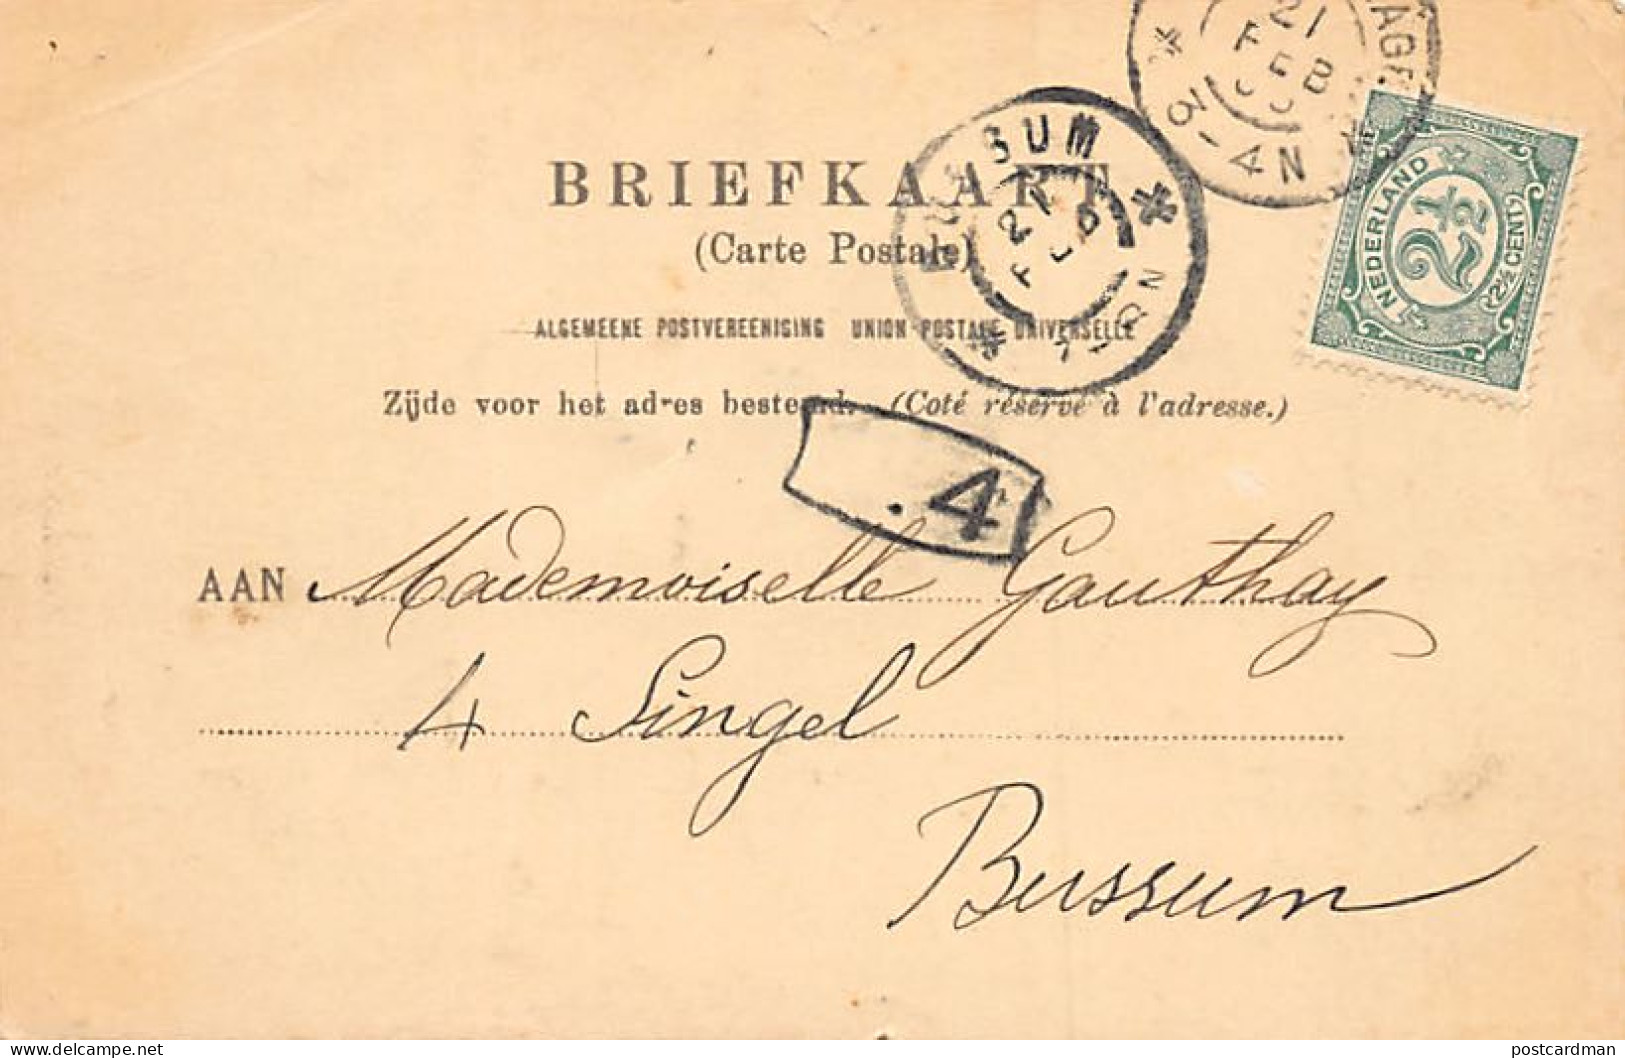 21
FEB
3-4 N
BUSSUM
21
FEB
BRIEFKAART
(Carte Postale)
NEDERLAND
2½
(2½ CENT)
ALGEMEENE POSTVEREENIGING UNION POSTALE UNIVERSELLE
Zijde voor het adres bestemd. (Coté réservé à l'adresse.)
. 4
AAN Mademoiselle Gauthay
4 Singel
Bussum
www.delcampe.net
postcardman